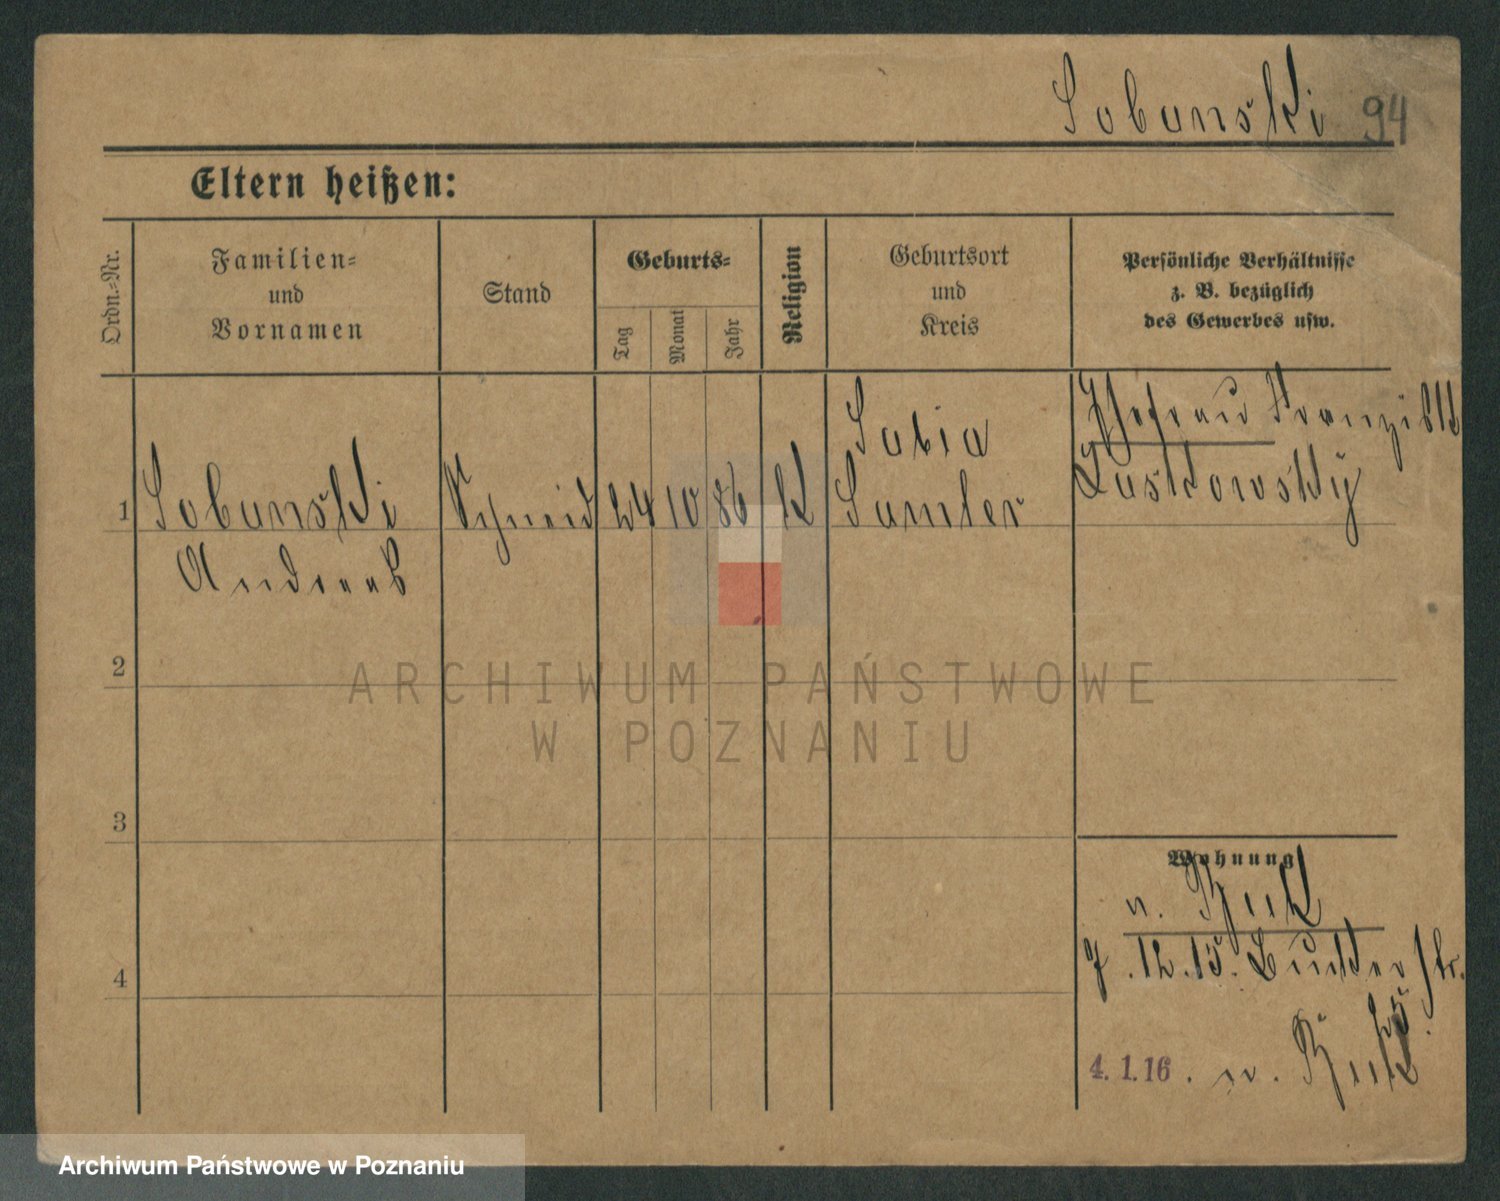 Sobanski 94
Eltern heißen:
Ordn.-Nr.
Familien-
und
Vornamen
Stand
Geburts-
Tag
Monat
Jahr
Religion
Geburtsort
und
Kreis
Persönliche Verhältnisse
z. B. bezüglich
des Gewerbes usw.
1
Sobanski
Andreas
Schneid
24 10 86 K
Samter
Ehefrau
2
3
4
Wohnung
n. Buk
7.12.15. Buker str.
4.1.16. n. Buk
ARCHIWUM PAŃSTWOWE
W POZNANIU
Archiwum Państwowe w Poznaniu